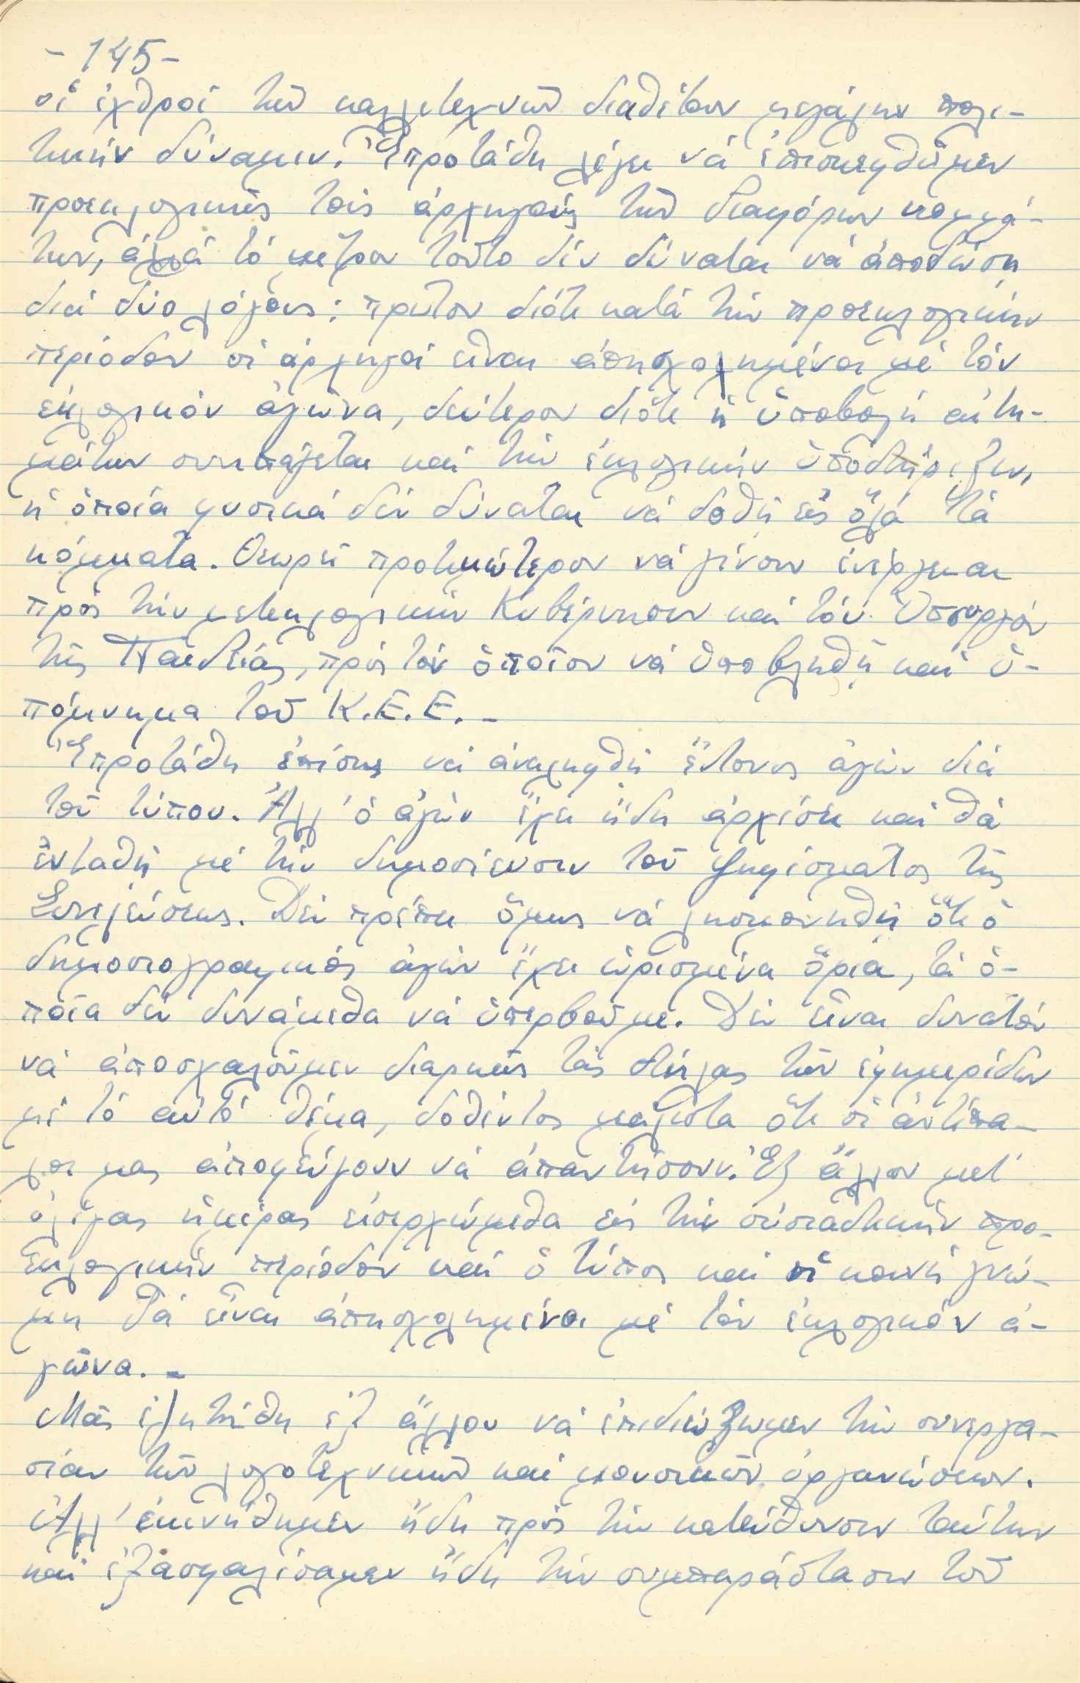 - 145 -
οἱ ἐχθροί τῶν καλλιτεχνῶν διαθέτουν μεγάλην πολι-
τικήν δύναμιν. Ἐπροτάθη λέγει νά ἐπισκεφθῶμεν
προεκλογικῶς τούς ἀρχηγούς τῶν διαφόρων κομμά-
των, ἀλλά τό μέτρον τοῦτο δέν δύναται νά ἀποδώση
διά δύο λόγους: πρῶτον διότι κατά τήν προεκλογικήν
περίοδον οἱ ἀρχηγοί εἶναι ἀπησχολημένοι μέ τόν
ἐκλογικόν ἀγῶνα, δεύτερον διότι ἡ ὑποβολή αἰτη-
μάτων συνεπάγεται καί τήν ἐκλογικήν ὑποστήριξιν,
ἡ ὁποία φυσικά δέν δύναται νά δοθῆ εἰς ὅλα τά
κόμματα. Θεωρεῖ προτιμώτερον νά γίνουν ἐνέργειαι
πρός τήν μετεκλογικήν Κυβέρνησιν καί τόν Ὑπουργόν
τῆς Παιδείας, πρός τόν ὁποῖον νά ὑποβληθῆ καί ὑ-
πόμνημα τοῦ Κ.Ε.Ε. -
Ἐπροτάθη ἐπίσης νά ἀναληφθῆ ἔντονος ἀγών διά
τοῦ τύπου. Ἀλλ' ὁ ἀγών ἔχει ἤδη ἀρχίσει καί θά
ἐνταθῆ μέ τήν δημοσίευσιν τοῦ ψηφίσματος τῆς
Συνελεύσεως. Δέν πρέπει ὅμως νά λησμονηθῆ ὅτι ὁ
δημοσιογραφικός ἀγών ἔχει ὡρισμένα ὅρια, τά ὁ-
ποῖα δέν δυνάμεθα νά ὑπερβοῦμε. Δέν εἶναι δυνατόν
νά ἀπασχολοῦμεν διαρκῶς τάς στήλας τῶν ἐφημερίδων
μέ τό αὐτό θέμα, δοθέντος μάλιστα ὅτι οἱ ἀντίπα-
λοι μας ἀποφεύγουν νά ἀπαντήσουν. Ἐξ ἄλλου μετ'
ὀλίγας ἡμέρας εἰσερχώμεθα εἰς τήν οὐσιαστικήν προ-
εκλογικήν περίοδον καί ὁ τύπος καί ἡ κοινή γνώ-
μη θά εἶναι ἀπησχολημένοι μέ τόν ἐκλογικόν ἀ-
γῶνα. -
Μᾶς ἐζητήθη ἐξ ἄλλου νά ἐπιδιώξωμεν τήν συνεργα-
σίαν τῶν λογοτεχνικῶν καί μουσικῶν ὀργανώσεων.
Ἀλλ' ἐκινήθημεν ἤδη πρός τήν κατεύθυνσιν ταύτην
καί ἐξασφαλίσαμεν ἤδη τήν συμπαράστασιν τοῦ